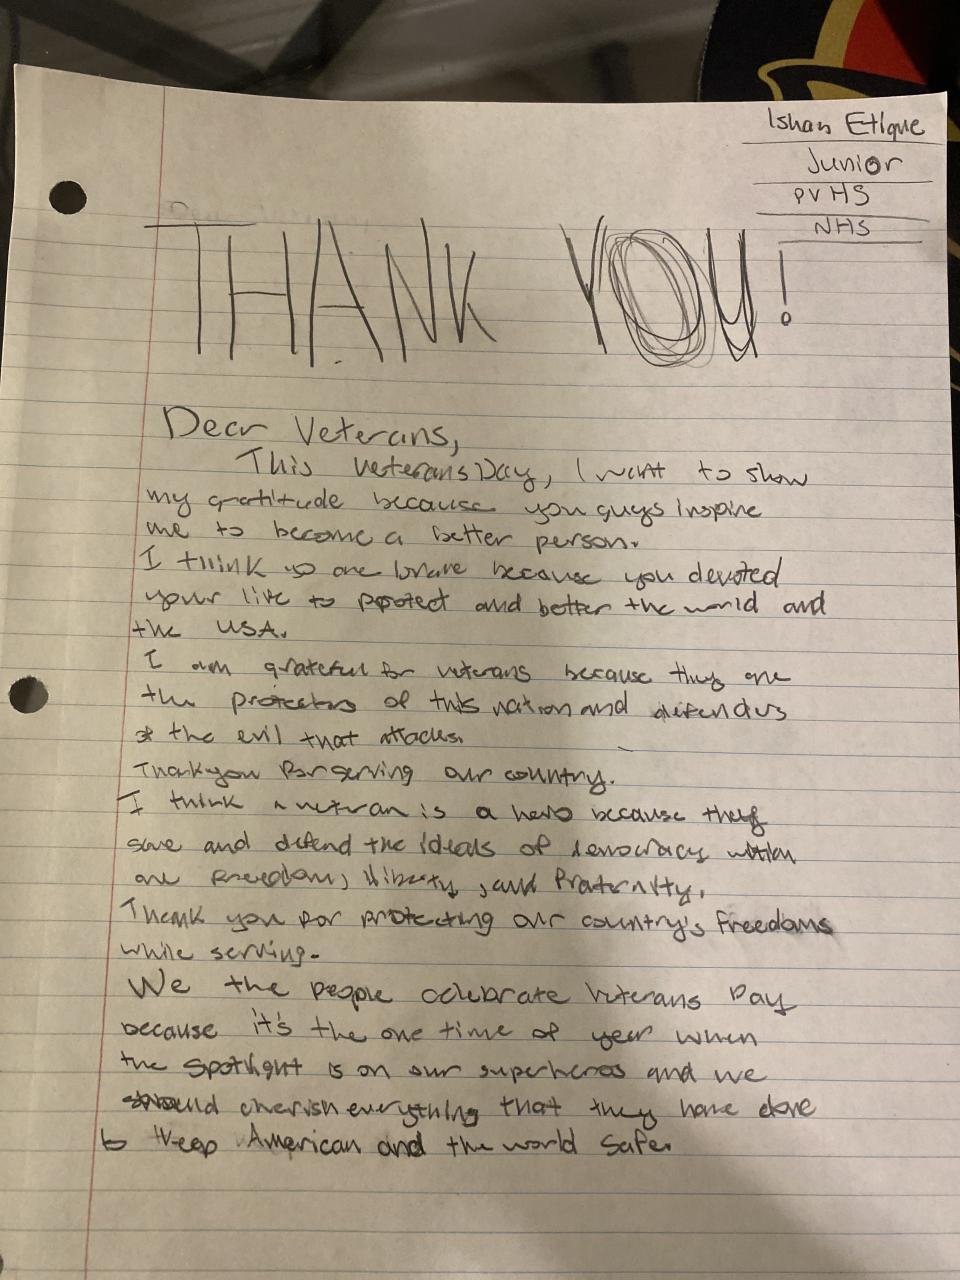 Ishan Etique
Junior
PVHS
NHS
THANK YOU!
Dear Veterans,
This Veterans Day, I want to show
my gratitude because you guys inspire
me to become a better person.
I think are brave because you devoted
your live to protect and better the world and
the USA.
I am grateful for veterans because they are
the protectors of this nation and defenders
of the evil that attacks.
Thank you for serving our country.
I think a veteran is a hero because they
save and defend the ideals of democracy which
are freedom, liberty, and fraternity.
Thank you for protecting our country's freedoms
while serving.
We the people celebrate Veterans Day
because it's the one time of year when
the spotlight is on our superheros and we
cherish everything that they have done
to keep American and the world safe.